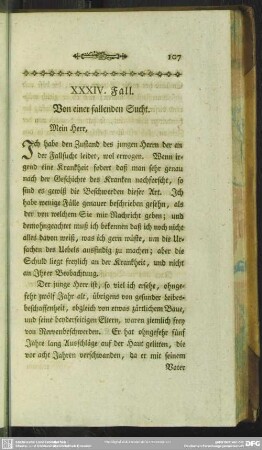 107
XXXIV. Fall.
Von einer fallenden Sucht.
Mein Herr,
Ich habe den Zustand des jungen Herrn der an
der Fallsucht leidet, wol erwogen. Wenn ir-
gend eine Krankheit fodert daß man sehr genau
nach der Geschichte des Kranken nachforscht, so
sind es gewiß die Beschwerden dieser Art. Ich
habe wenige Fälle genauer beschrieben gesehn, als
der von welchem Sie mir Nachricht geben; und
demohngeachtet muß ich bekennen daß ich noch nicht
alles davon weiß, was ich gern wüßte, um die Ur-
sachen des Uebels ausfindig zu machen; aber die
Schuld liegt freylich an der Krankheit, und nicht
an Ihrer Beobachtung.
Der junge Herr ist, so viel ich ersehe, ohnge-
fehr zwölf Jahr alt, übrigens von gesunder Leibes-
beschaffenheit, obgleich von etwas zärtlichem Baue,
und seine beyderseitigen Eltern, waren ziemlich frey
von Nervenbeschwerden. Er hat ohngefehr fünf
Jahre lang Ausschläge auf der Haut gelitten, die
vor acht Jahren verschwanden, da er mit seinem
Vater